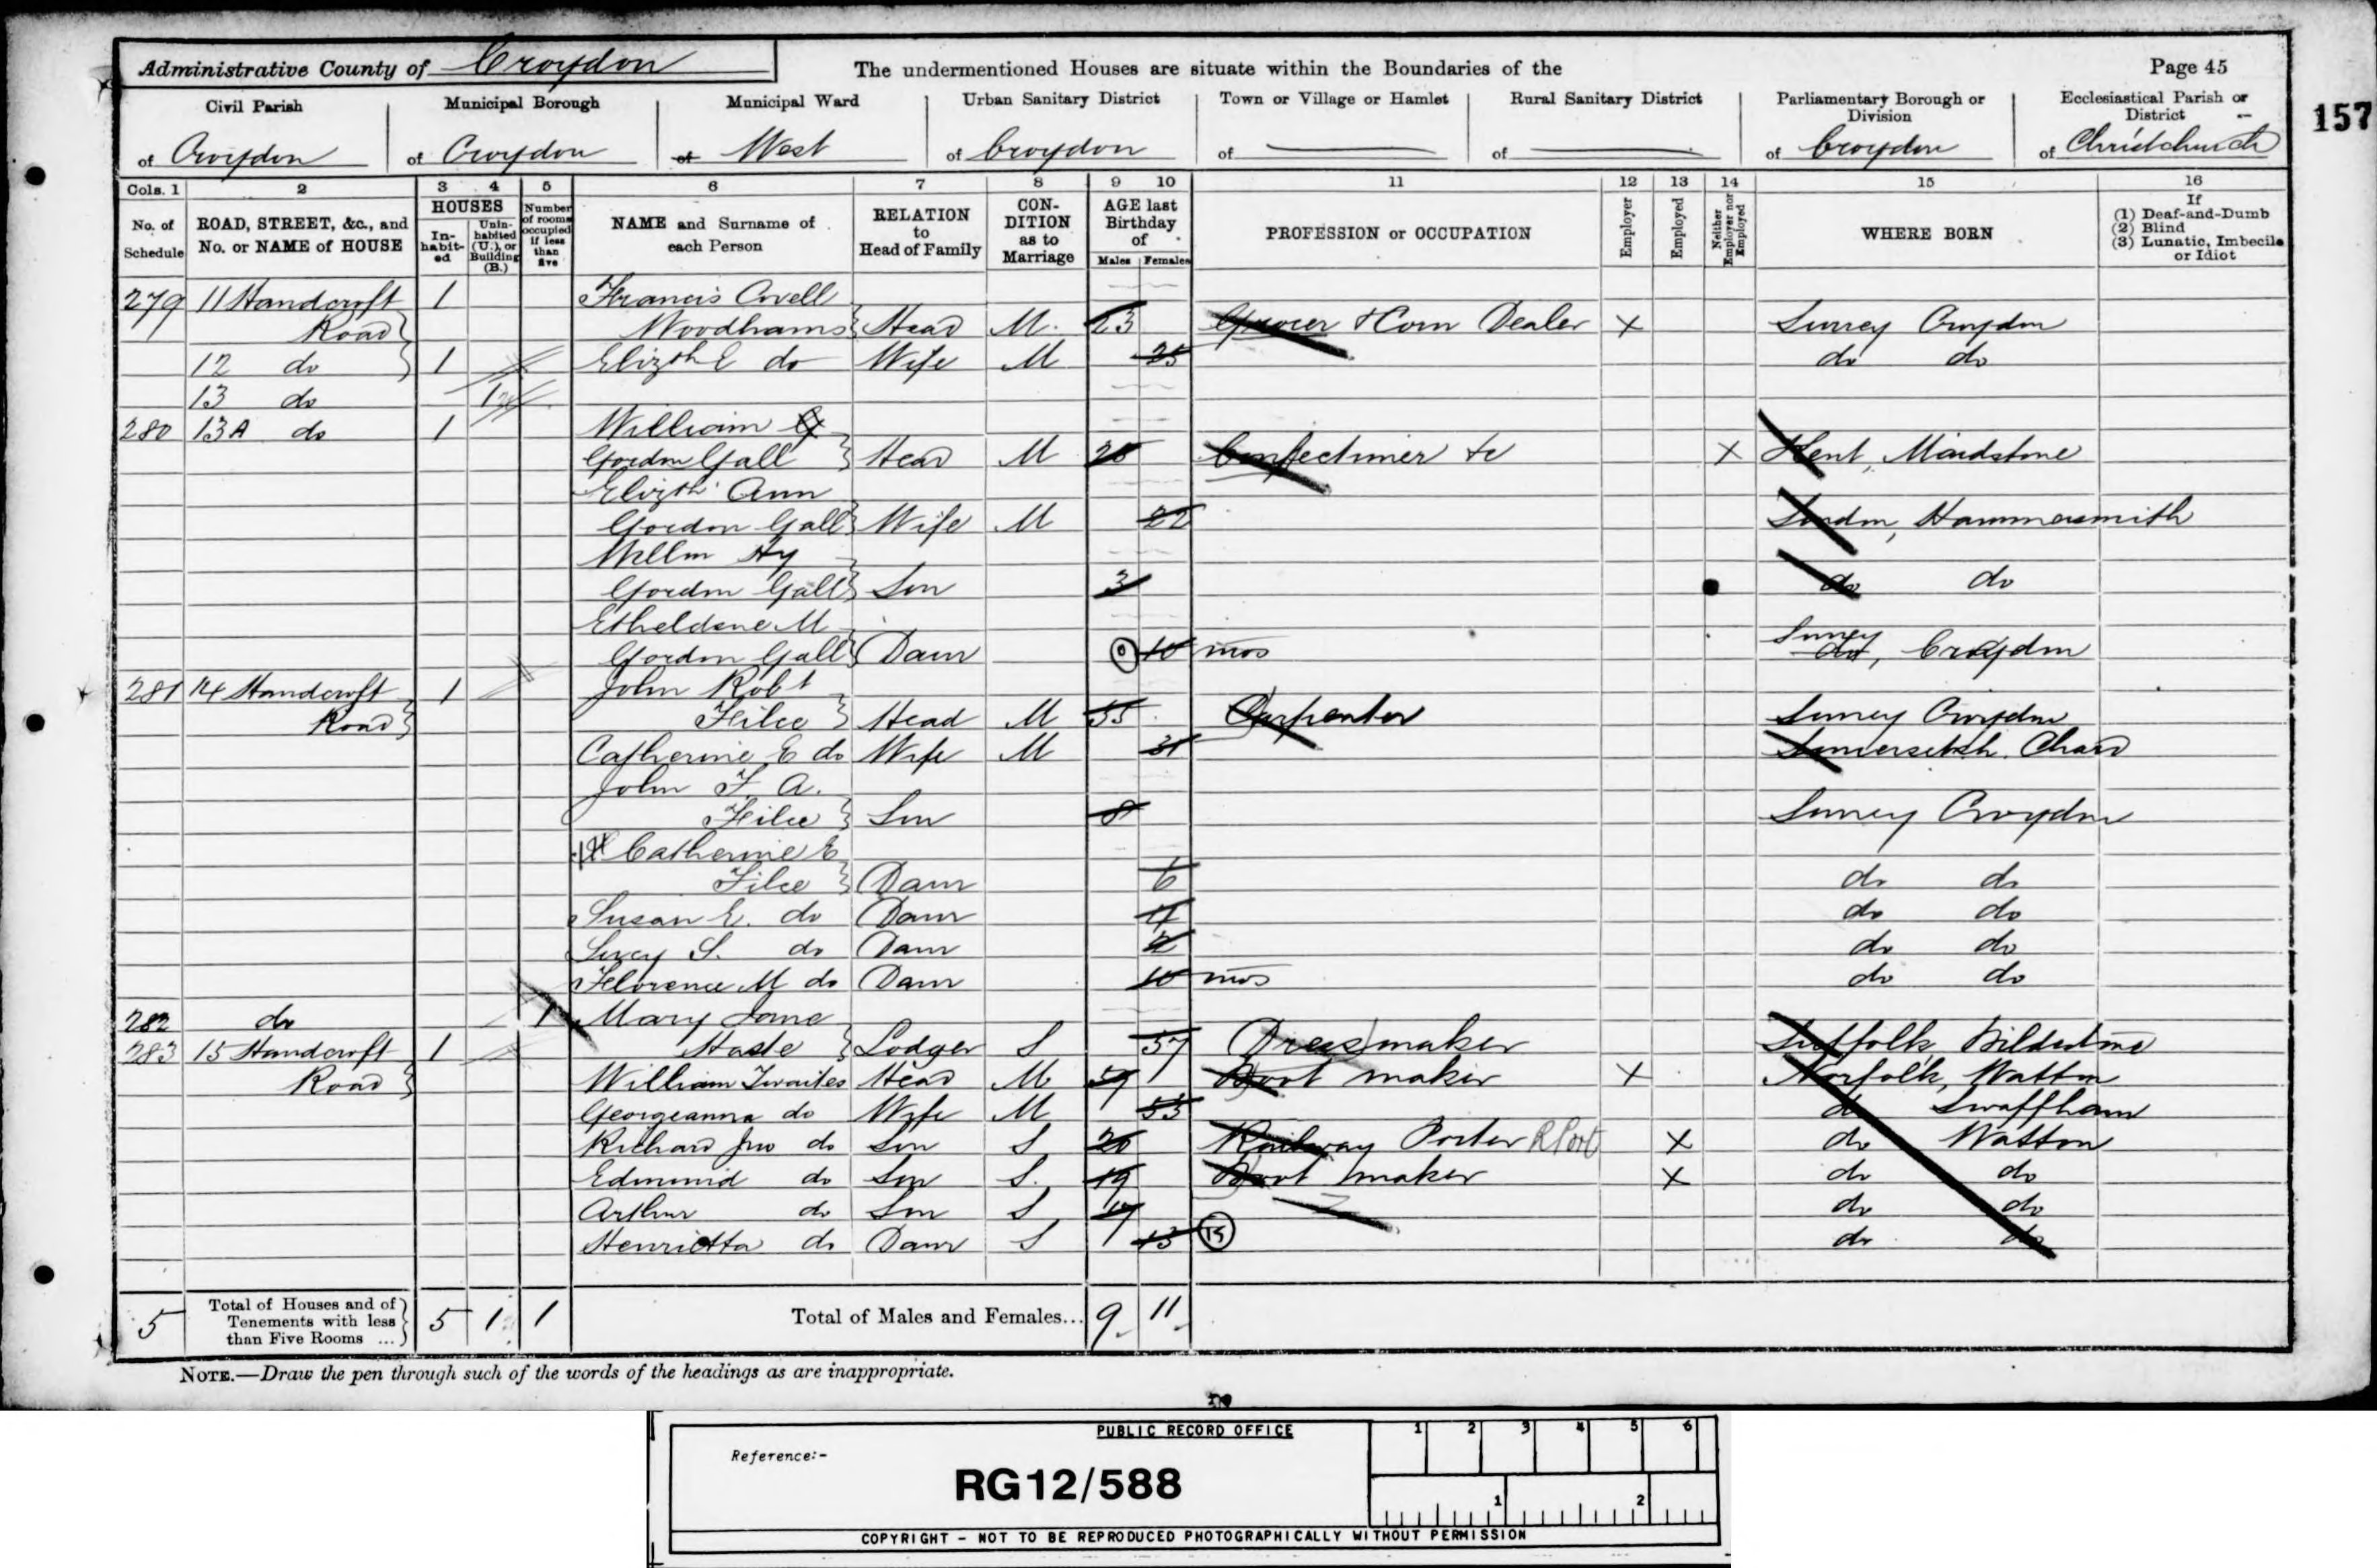 Administrative County of Croydon
The undermentioned Houses are situate within the Boundaries of the
Page 45
157
Civil Parish of Croydon
Municipal Borough of Croydon
Municipal Ward of West
Urban Sanitary District of Croydon
Town or Village or Hamlet of
Rural Sanitary District of
Parliamentary Borough or Division of Croydon
Ecclesiastical Parish or District of Christchurch
Cols. 1 2 3 4 5 6 7 8 9 10 11 12 13 14 15 16
No. of Schedule
ROAD, STREET, &c., and No. or NAME of HOUSE
HOUSES
In-habit-ed
Unin-habited (U.), or Building (B.)
Number of rooms occupied if less than five
NAME and Surname of each Person
RELATION to Head of Family
CON-DITION as to Marriage
AGE last Birthday of
Males Females
PROFESSION or OCCUPATION
Employer
Employed
Neither Employer nor Employed
WHERE BORN
If
(1) Deaf-and-Dumb
(2) Blind
(3) Lunatic, Imbecile or Idiot
279 11 Handcroft 1 Francis Covell
Road Woodhams Head M. 23 Grocer & Corn Dealer X Surrey Croydon
12 do 1 Elizth E do Wife M 25 do do
13 do 1
280 13A do 1 William G
Gordon Gall Head M Confectioner &c X Kent, Maidstone
Elizth Ann
Gordon Gall Wife M 22 London, Hammersmith
Willm Hy
Gordon Gall Son 3 do do
M
Gordon Gall Daur 0 10 mos Surrey do, Croydon
281 14 Handcroft 1 John Robt
Road Filce Head M Carpenter Surrey Croydon
Catherine E do Wife M 31 Somersetsh. Chard
John F. A.
Filce Son 8 Surrey Croydon
Catherine E
Filce Daur 6 do do
Susan E. do Daur 4 do do
Lucy S. do Daur 2 do do
Florence M do Daur 10 mos do do
282 do 1 Mary Jane
283 15 Handcroft 1 Lodger S 57 Dressmaker Suffolk Bildestone
Road William Twaites Head M 59 Boot maker X Norfolk, Watton
Georgeanna do Wife M 53 do Swaffham
Richard Jno do Son S 20 Railway Porter R Port X do Watton
Edmund do Son S. 19 Boot maker X do do
Arthur do Son S 17 do do
Henrietta do Daur S 13 15 do do
5 Total of Houses and of Tenements with less than Five Rooms ... 5 1 1 Total of Males and Females... 9 11
NOTE.—Draw the pen through such of the words of the headings as are inappropriate.
PUBLIC RECORD OFFICE
1 2 3 4 5 6
Reference:-
RG12/588
1 2
COPYRIGHT - NOT TO BE REPRODUCED PHOTOGRAPHICALLY WITHOUT PERMISSION